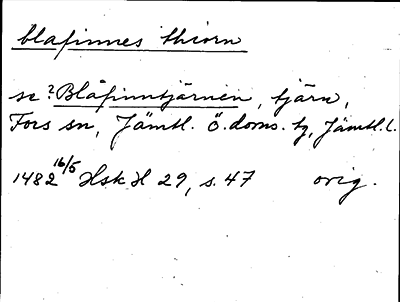 blafinnes thiorn
se? Blåfinntjärnen, tjärn,
Fors sn, Jämtl. Ö. doms. tg, Jämtl. l.
1482 16/5 Hsk H 29, s. 47 orig.